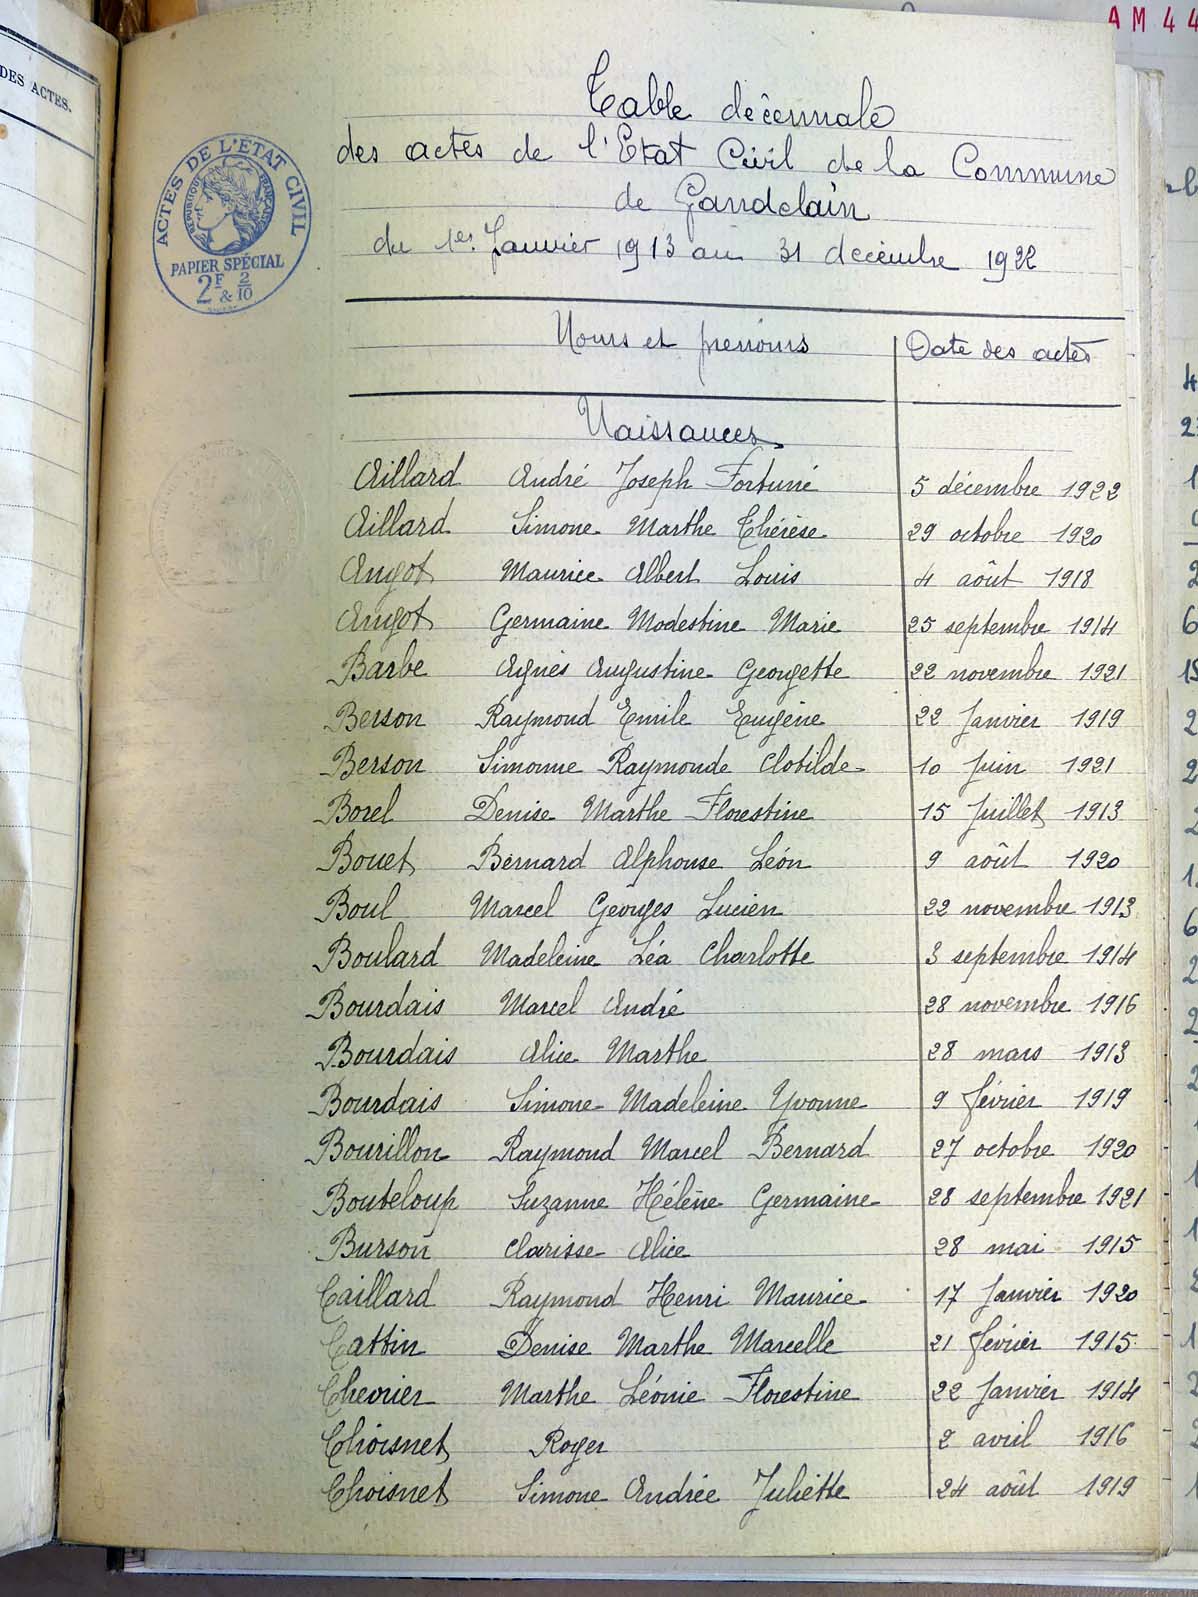 DES ACTES.
AM 44
ACTES DE L'ETAT CIVIL
REPUBLIQUE FRANÇAISE
PAPIER SPÉCIAL
2F & 2/10
Table décennale
des actes de l'Etat Civil de la Commune
de Gandelain
du 1er Janvier 1913 au 31 décembre 1922
Noms et prénoms Date des actes
Naissances
Aillard André Joseph Fortuné 5 décembre 1922
Aillard Simone Marthe Thérèse 29 octobre 1920
Angot Maurice Albert Louis 4 août 1918
Angot Germaine Modestine Marie 25 septembre 1914
Barbe Agnès Augustine Georgette 22 novembre 1921
Berson Raymond Emile Eugène 22 Janvier 1919
Berson Simonne Raymonde Clotilde 10 Juin 1921
Borel Denise Marthe Florestine 15 Juillet 1913
Bouet Bernard Alphonse Léon 9 août 1920
Boul Marcel Georges Lucien 22 novembre 1913
Boulard Madeleine Léa Charlotte 3 septembre 1914
Bourdais Marcel André 28 novembre 1916
Bourdais Alice Marthe 28 mars 1913
Bourdais Simone Madeleine Yvonne 9 février 1919
Bourillon Raymond Marcel Bernard 27 octobre 1920
Bouteloup Suzanne Hélène Germaine 28 septembre 1921
Burson Clarisse Alice 28 mai 1915
Caillard Raymond Henri Maurice 17 Janvier 1920
Cattin Denise Marthe Marcelle 21 février 1915
Chevrier Marthe Léonie Florestine 22 Janvier 1914
Choisnet Roger 2 avril 1916
Choisnet Simone Andrée Juliette 24 août 1919